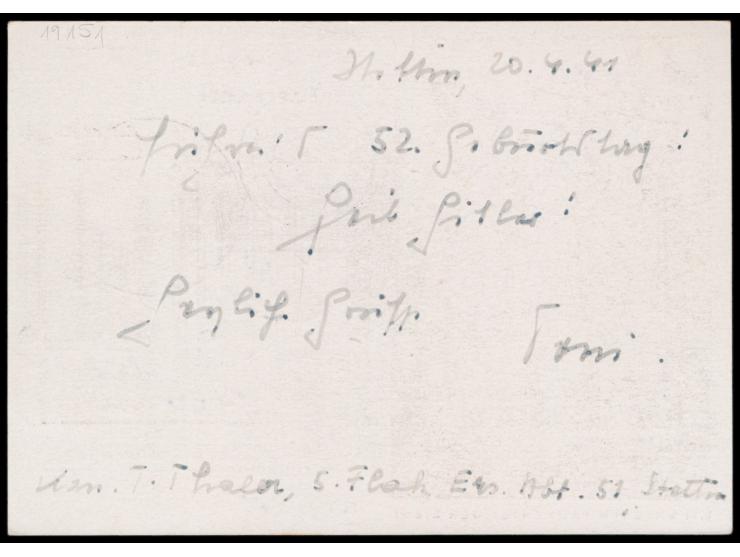 19151
Stettin, 20.4.41
Führer's 52. Geburtstag!
Heil Hitler!
Herzlich. Grüsse
Toni.
Kan. T. Thaler, 5. Flak Ers. Abt. 51, Stettin